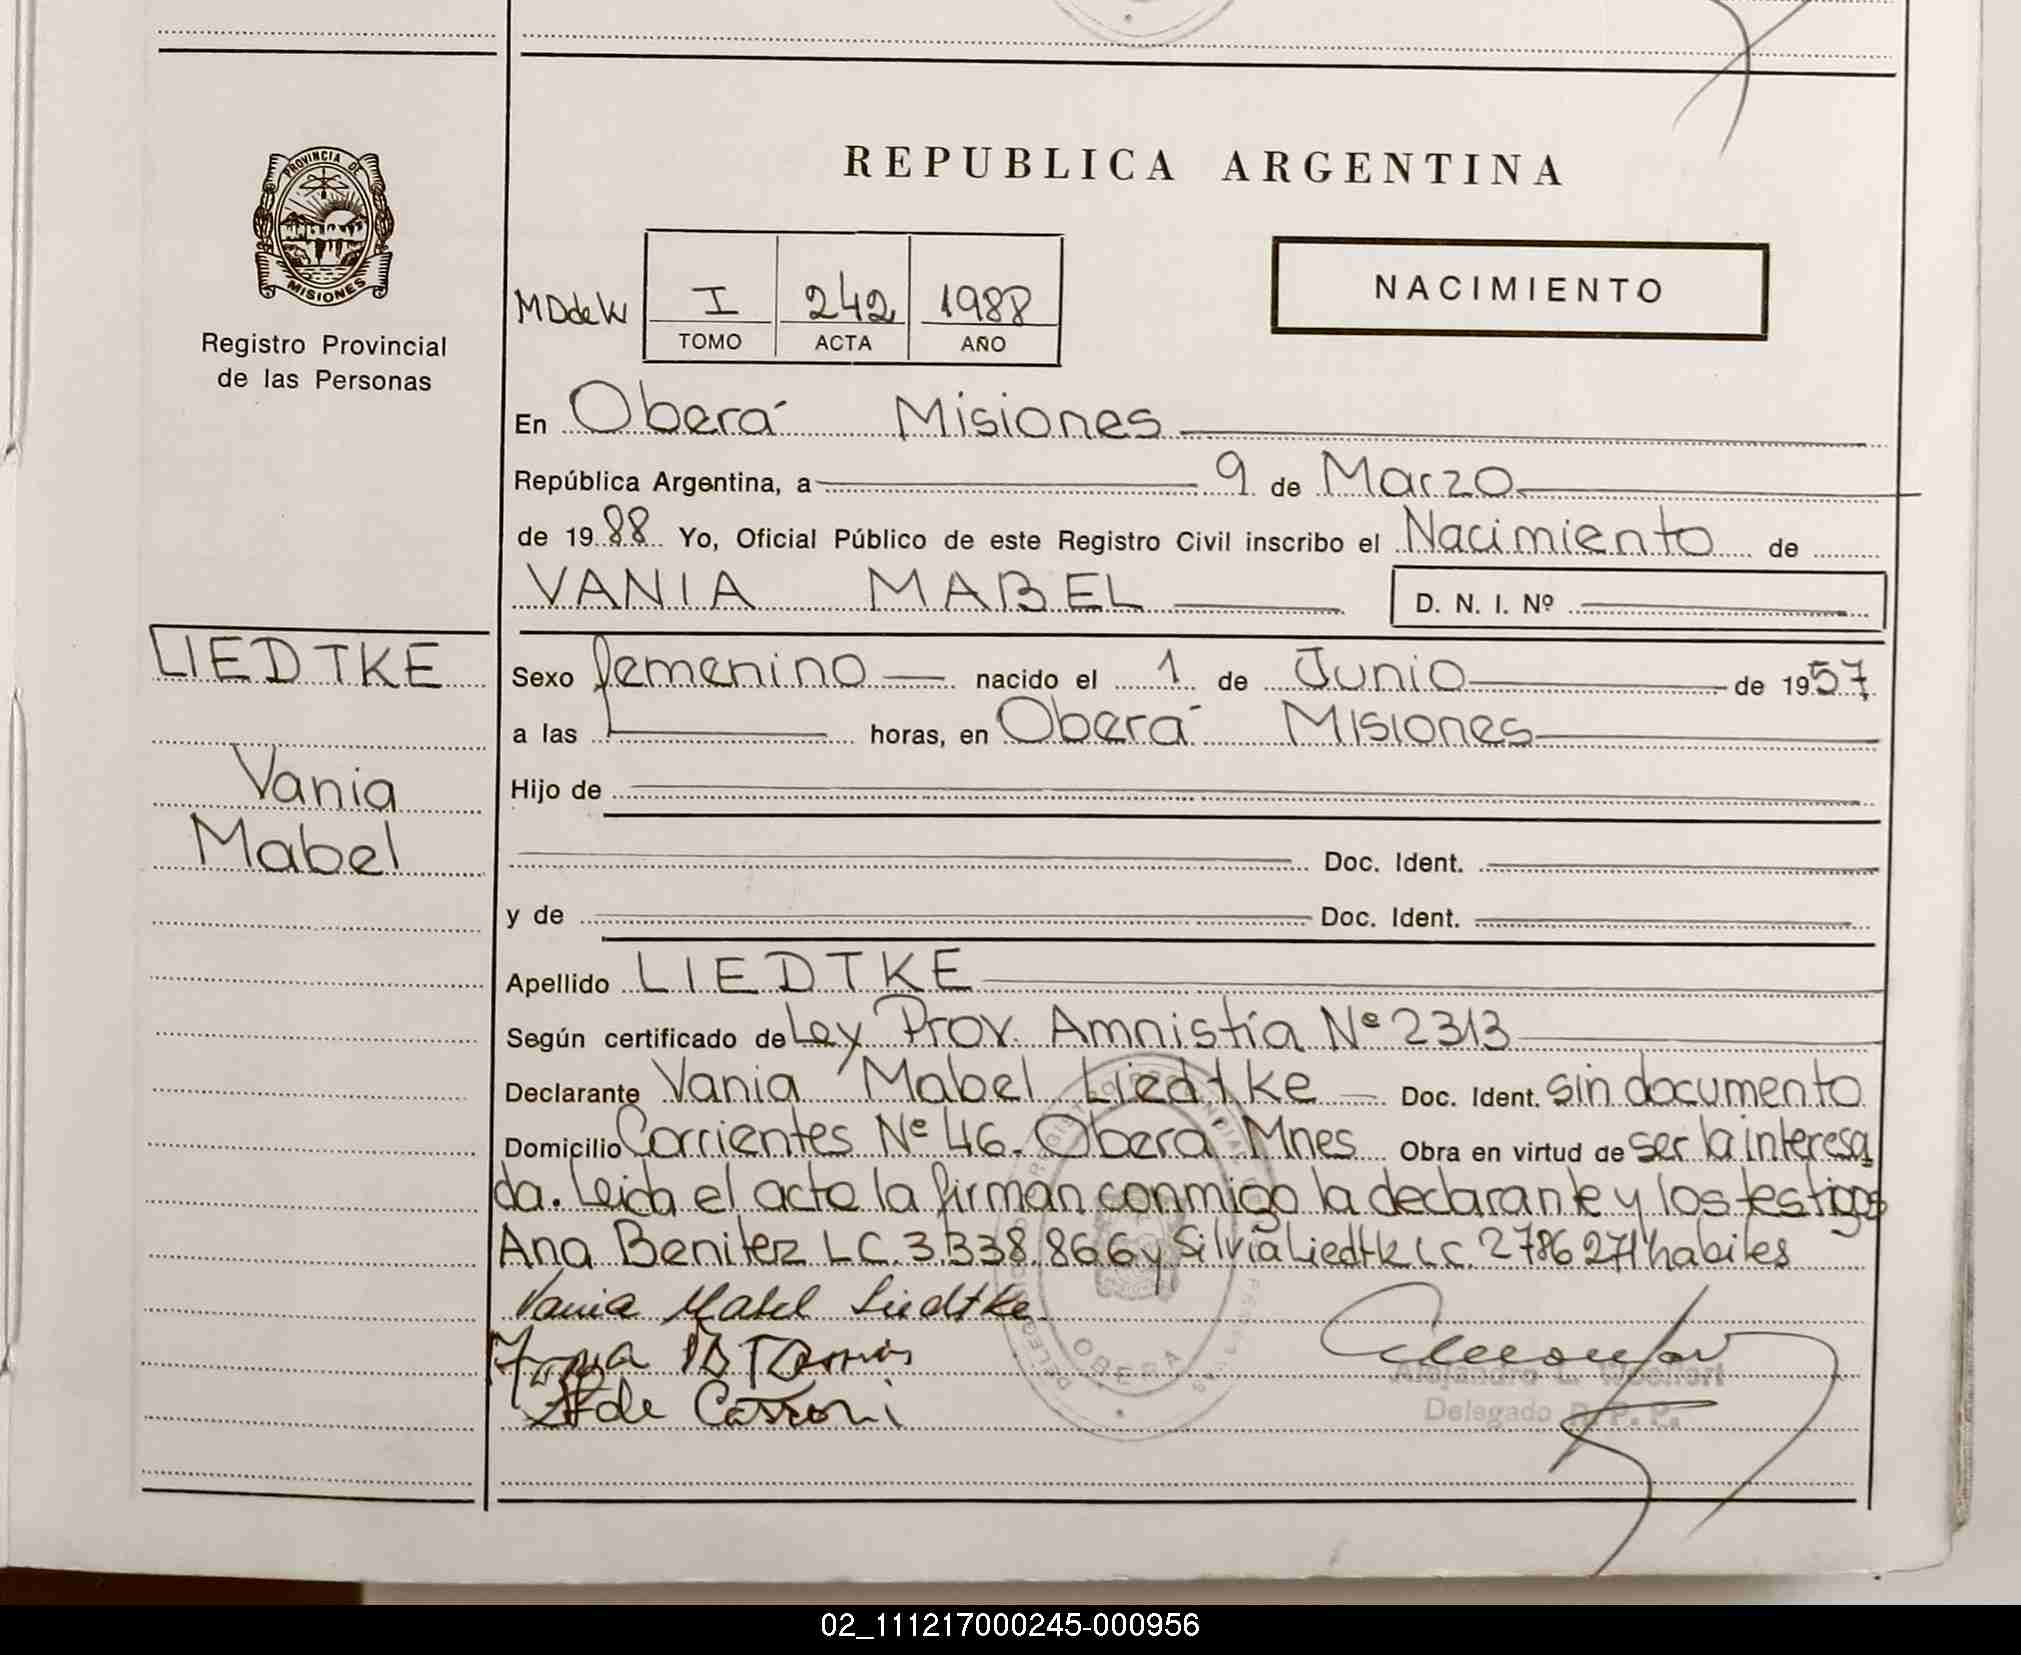 PROVINCIA DE
MISIONES
Registro Provincial
de las Personas
LIEDTKE
Vania
Mabel
REPUBLICA ARGENTINA
MDdeW
I 242 1988
TOMO ACTA AÑO
NACIMIENTO
En Oberá Misiones
República Argentina, a 9 de Marzo
de 1988 Yo, Oficial Público de este Registro Civil inscribo el Nacimiento de
VANIA MABEL D. N. I. Nº
Sexo femenino nacido el 1 de Junio de 1957
a las horas, en Oberá Misiones
Hijo de
Doc. Ident.
y de Doc. Ident.
Apellido LIEDTKE
Según certificado de Ley Prov. Amnistía Nº 2313
Declarante Vania Mabel Liedtke Doc. Ident. sin documento
Domicilio Corrientes Nº 46. Oberá Mnes Obra en virtud de ser la interesa
da. Leida el acta la firman conmigo la declarante y los testigos
Ana Benitez LC. 3.338.866 y Silvia Liedtk LC. 2786271 habiles
Vania Mabel Liedtke
Delegado R. P. P.
OBERA
02_111217000245-000956